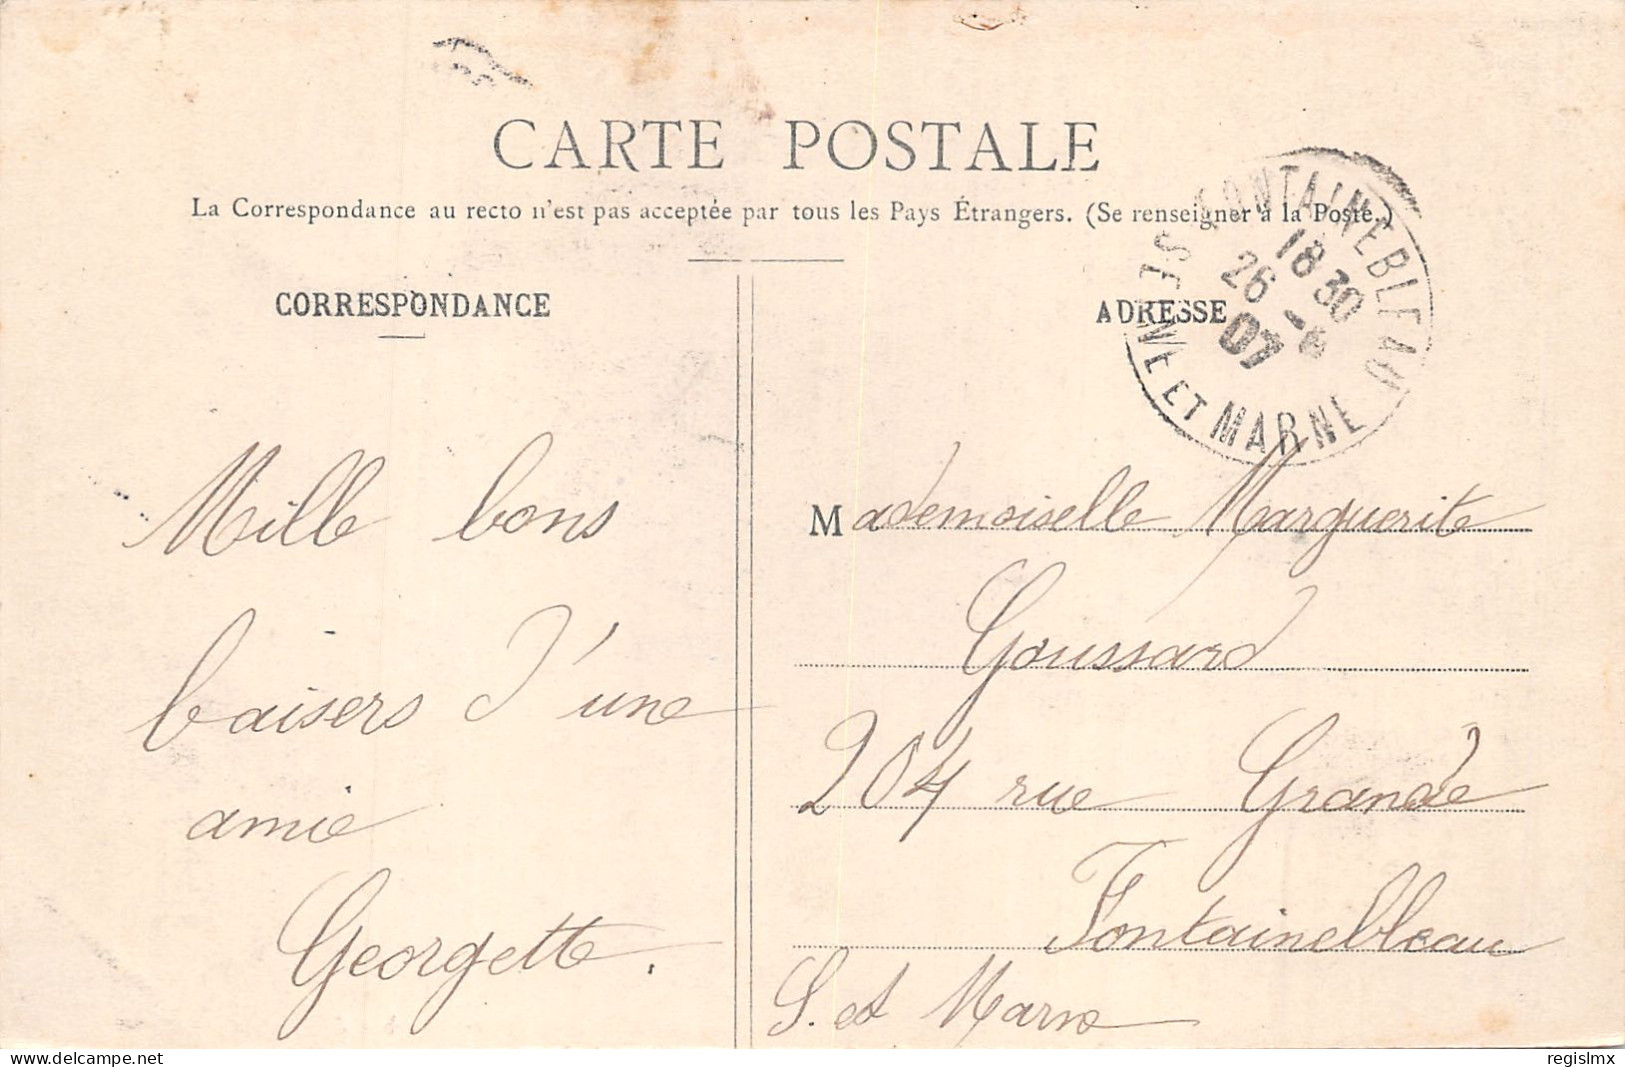 CARTE POSTALE
La Correspondance au recto n'est pas acceptée par tous les Pays Étrangers. (Se renseigner à la Poste.)
CORRESPONDANCE
ADRESSE
FONTAINEBLEAU
18 30
26
07
SEINE ET MARNE
Mille bons
baisers d'une
amie
Georgette.
Mademoiselle Marguerite
Goussard
204 rue Grande
Fontainebleau
S. et Marne
regislmx